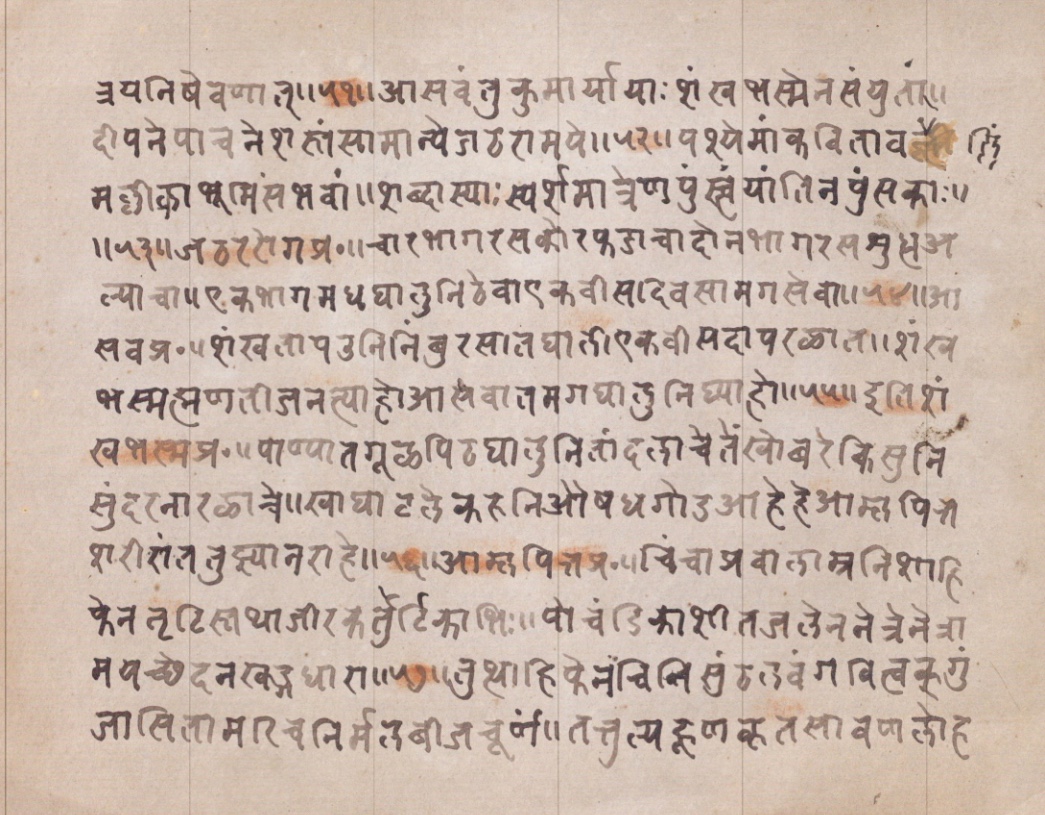 त्रयनिषेवणात्॥५१॥आसवंतुकुमार्यायाः शंखभस्मेनसंयुतां॥
दीपनेपाचनेशस्तंसामान्येजठरामये॥५२॥पश्येमांकविताव
मद्भीकाभूमिसंभवां॥शब्दास्याःस्पर्शमात्रेणपुंस्त्वंयांतिनपुंसकाः॥
॥५३॥जठररोगप्र॰॥चारभागरसकोरफडाचादोनभागरसमुधअ
ल्याचा॥एकभागमधघातुनिठेवाएकवीसदिवसामगसेवा॥५४॥आ
सवप्र॰॥शंखतापउनिनिंबुरसातघालीएकवीसदापरळात॥शंख
भस्मह्मणतीजनत्याहोआसवातमगघातुनिघ्याहो॥५५॥इतिशं
खभस्मप्र॰॥पाण्यातगूळपिठघातुनितांदलाचेतेंखोबरेकिसुनि
सुंदरनारळाचे॥खाघाटलेकरुनिऔषधगोडआहेहेआम्लपित्त
शरीरांततुझ्यानराहे॥५६॥आम्लपित्तप्र॰॥चिंचाप्रवालाम्रनिशाहि
फेनतृटिस्तथाजीरकतुर्टिकाभिः॥पोचंडिकाशीतजलेननेत्रेनेत्रा
मयच्छेदनखड्गधारा॥५७॥तुत्थाहिफेनंचिलिसुंठलवंगबिल्वकगुं
जासितामरिचनिर्मलबीजचूर्णं॥तत्तुल्यदृणकृतसावणलोह